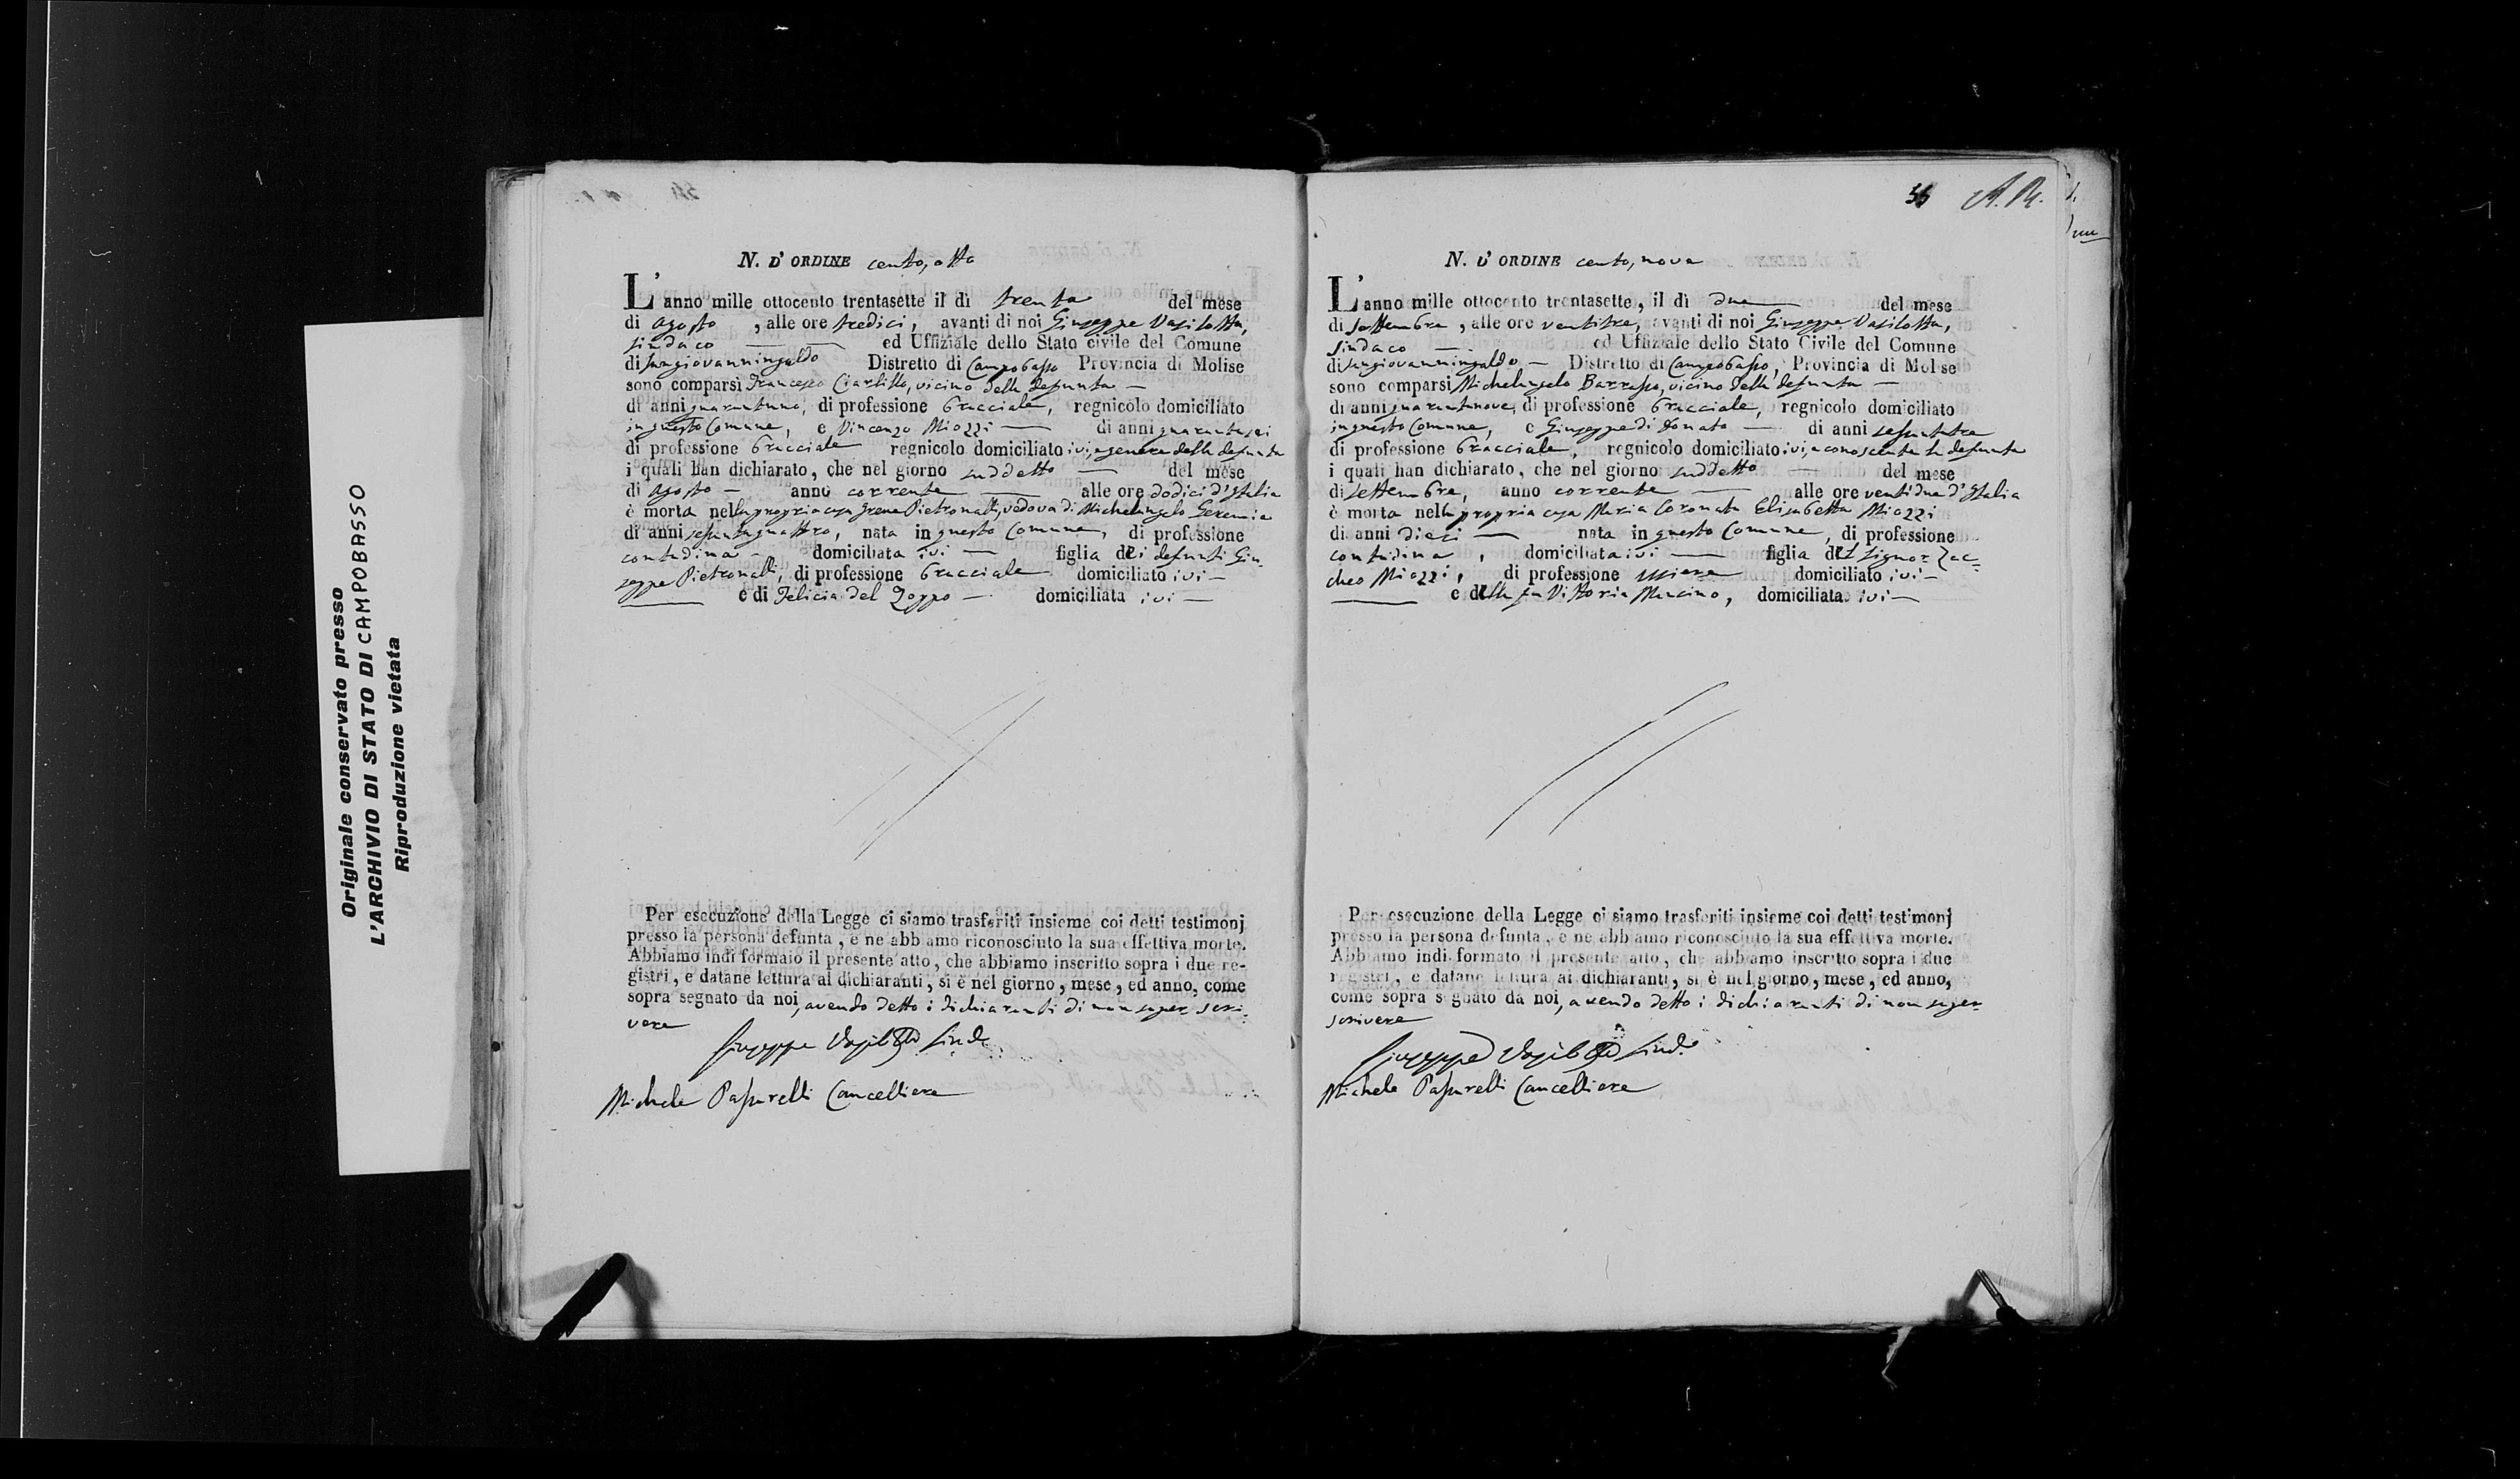 Originale conservato presso
L'ARCHIVIO DI STATO DI CAMPOBASSO
Riproduzione vietata
N. D' ORDINE cento, otto
L' anno mille ottocento trentasette il di trenta del mese
di agosto , alle ore tredici, avanti di noi Giuseppe Vasilotta,
sindaco ed Uffiziale dello Stato civile del Comune
di sangiovanningaldo Distretto di Campobasso Provincia di Molise
sono comparsi Francesco Ciarlitto, vicino della defunta
di anni quarantuno, di professione bracciale, regnicolo domiciliato
in questo Comune, e Vincenzo Miozzi di anni quarantasei
di professione bracciale regnicolo domiciliato ivi, e genero della defunta
i quali han dichiarato, che nel giorno suddetto del mese
di agosto anno corrente alle ore dodici d'Italia
è morta nella propria casa Irena Pietronalli, vedova di Michelangelo Geremia
di anni sessantaquattro, nata in questo Comune, di professione
contadina domiciliata ivi figlia dei defunti Giu-
seppe Pietronalli, di professione bracciale domiciliato ivi
e di Felicia del Zoppo domiciliata ivi
Per esecuzione della Legge ci siamo trasferiti insieme coi detti testimonj
presso la persona defunta, e ne abb amo riconosciuto la sua effettiva morte.
Abbiamo indi formaio il presente atto, che abbiamo inscritto sopra i due re-
gistri, e datane lettura ai dichiaranti, si è nel giorno, mese, ed anno, come
sopra segnato da noi, avendo detto i dichiaranti di non saper scri-
vere
Giuseppe Vasilotta Sind.
Michele Passarelli Cancelliere
A. M.
N. D' ORDINE cento, nove
L' anno mille ottocento trentasette, il dì due del mese
di settembre, alle ore ventitre, avanti di noi Giuseppe Vasilotta,
sindaco ed Uffiziale dello Stato Civile del Comune
di sangiovanningaldo Distretto di Campobasso, Provincia di Mol se
sono comparsi Michelangelo Barrasso, vicino della defunta
di anni quarantanove, di professione bracciale, regnicolo domiciliato
in questo Comune, e Giuseppe di Donato di anni sessantatre
di professione bracciale, regnicolo domiciliato ivi, e conoscente la defunta
i quali han dichiarato, che nel giorno suddetto del mese
di settembre, anno corrente alle ore ventidue d'Italia
è morta nella propria casa Maria Coronata Elisabetta Miozzi
di anni dieci nata in questo Comune, di professione
contadina, domiciliata ivi figlia del Signor Zac-
cheo Miozzi, di professione usciere domiciliato ivi
e della fu Vittoria Mancino, domiciliata ivi
Per esecuzione della Legge ci siamo trasferiti insieme coi detti testimonj
presso la persona defunta, e ne abb amo riconosciuto la sua effettiva morte.
Abb amo indi formato il presente atto, che abbiamo inscritto sopra i due
registri, e datane lettura ai dichiaranti, si è nel giorno, mese, ed anno,
come sopra s gnato da noi, avendo detto i dichiaranti di non saper
scrivere
Giuseppe Vasilotta Sind.
Michele Passarelli Cancelliere